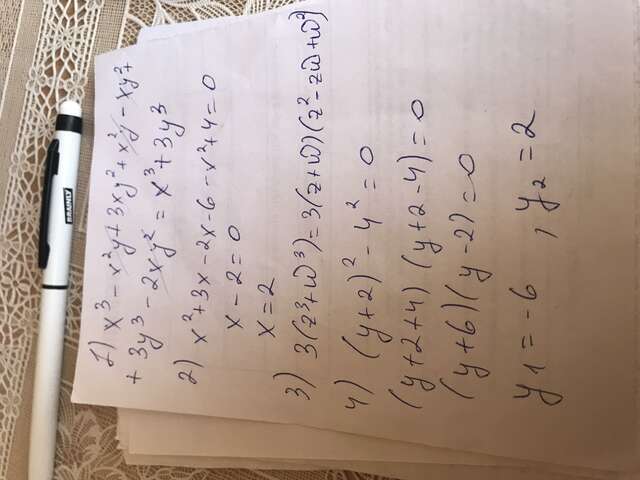 1) x³ - x²y + 3xy² + x²y - xy² +
+ 3y³ - 2xy² = x³ + 3y³
2) x² + 3x - 2x - 6 - x² + 4 = 0
x - 2 = 0
x = 2
3) 3(z³ + ω³) = 3(z + ω)(z² - zω + ω²)
4) (y + 2)² - 4² = 0
(y + 2 + 4)(y + 2 - 4) = 0
(y + 6)(y - 2) = 0
y1 = -6 , y2 = 2
BRAINLY